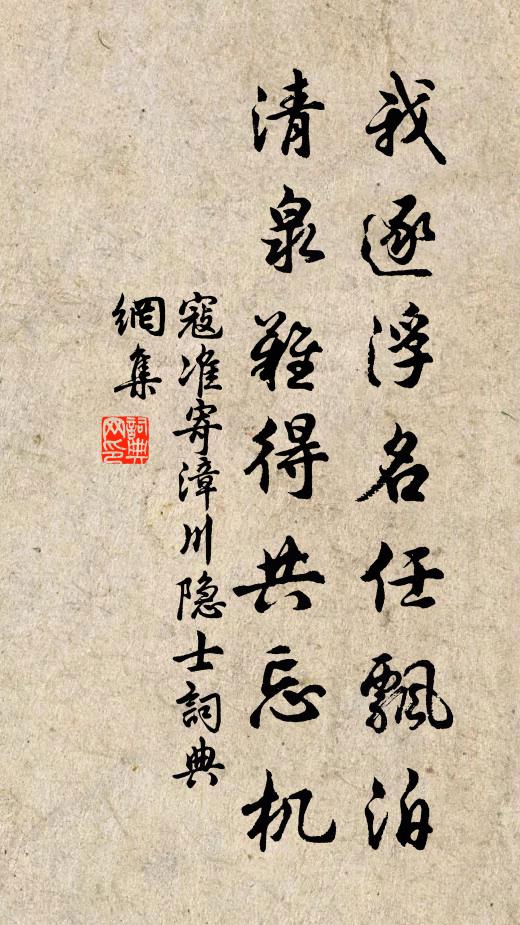 我逐浮名任飄泊
清泉難得共忘机
寇准寄漳川隐士詞典
網集
詞典网印